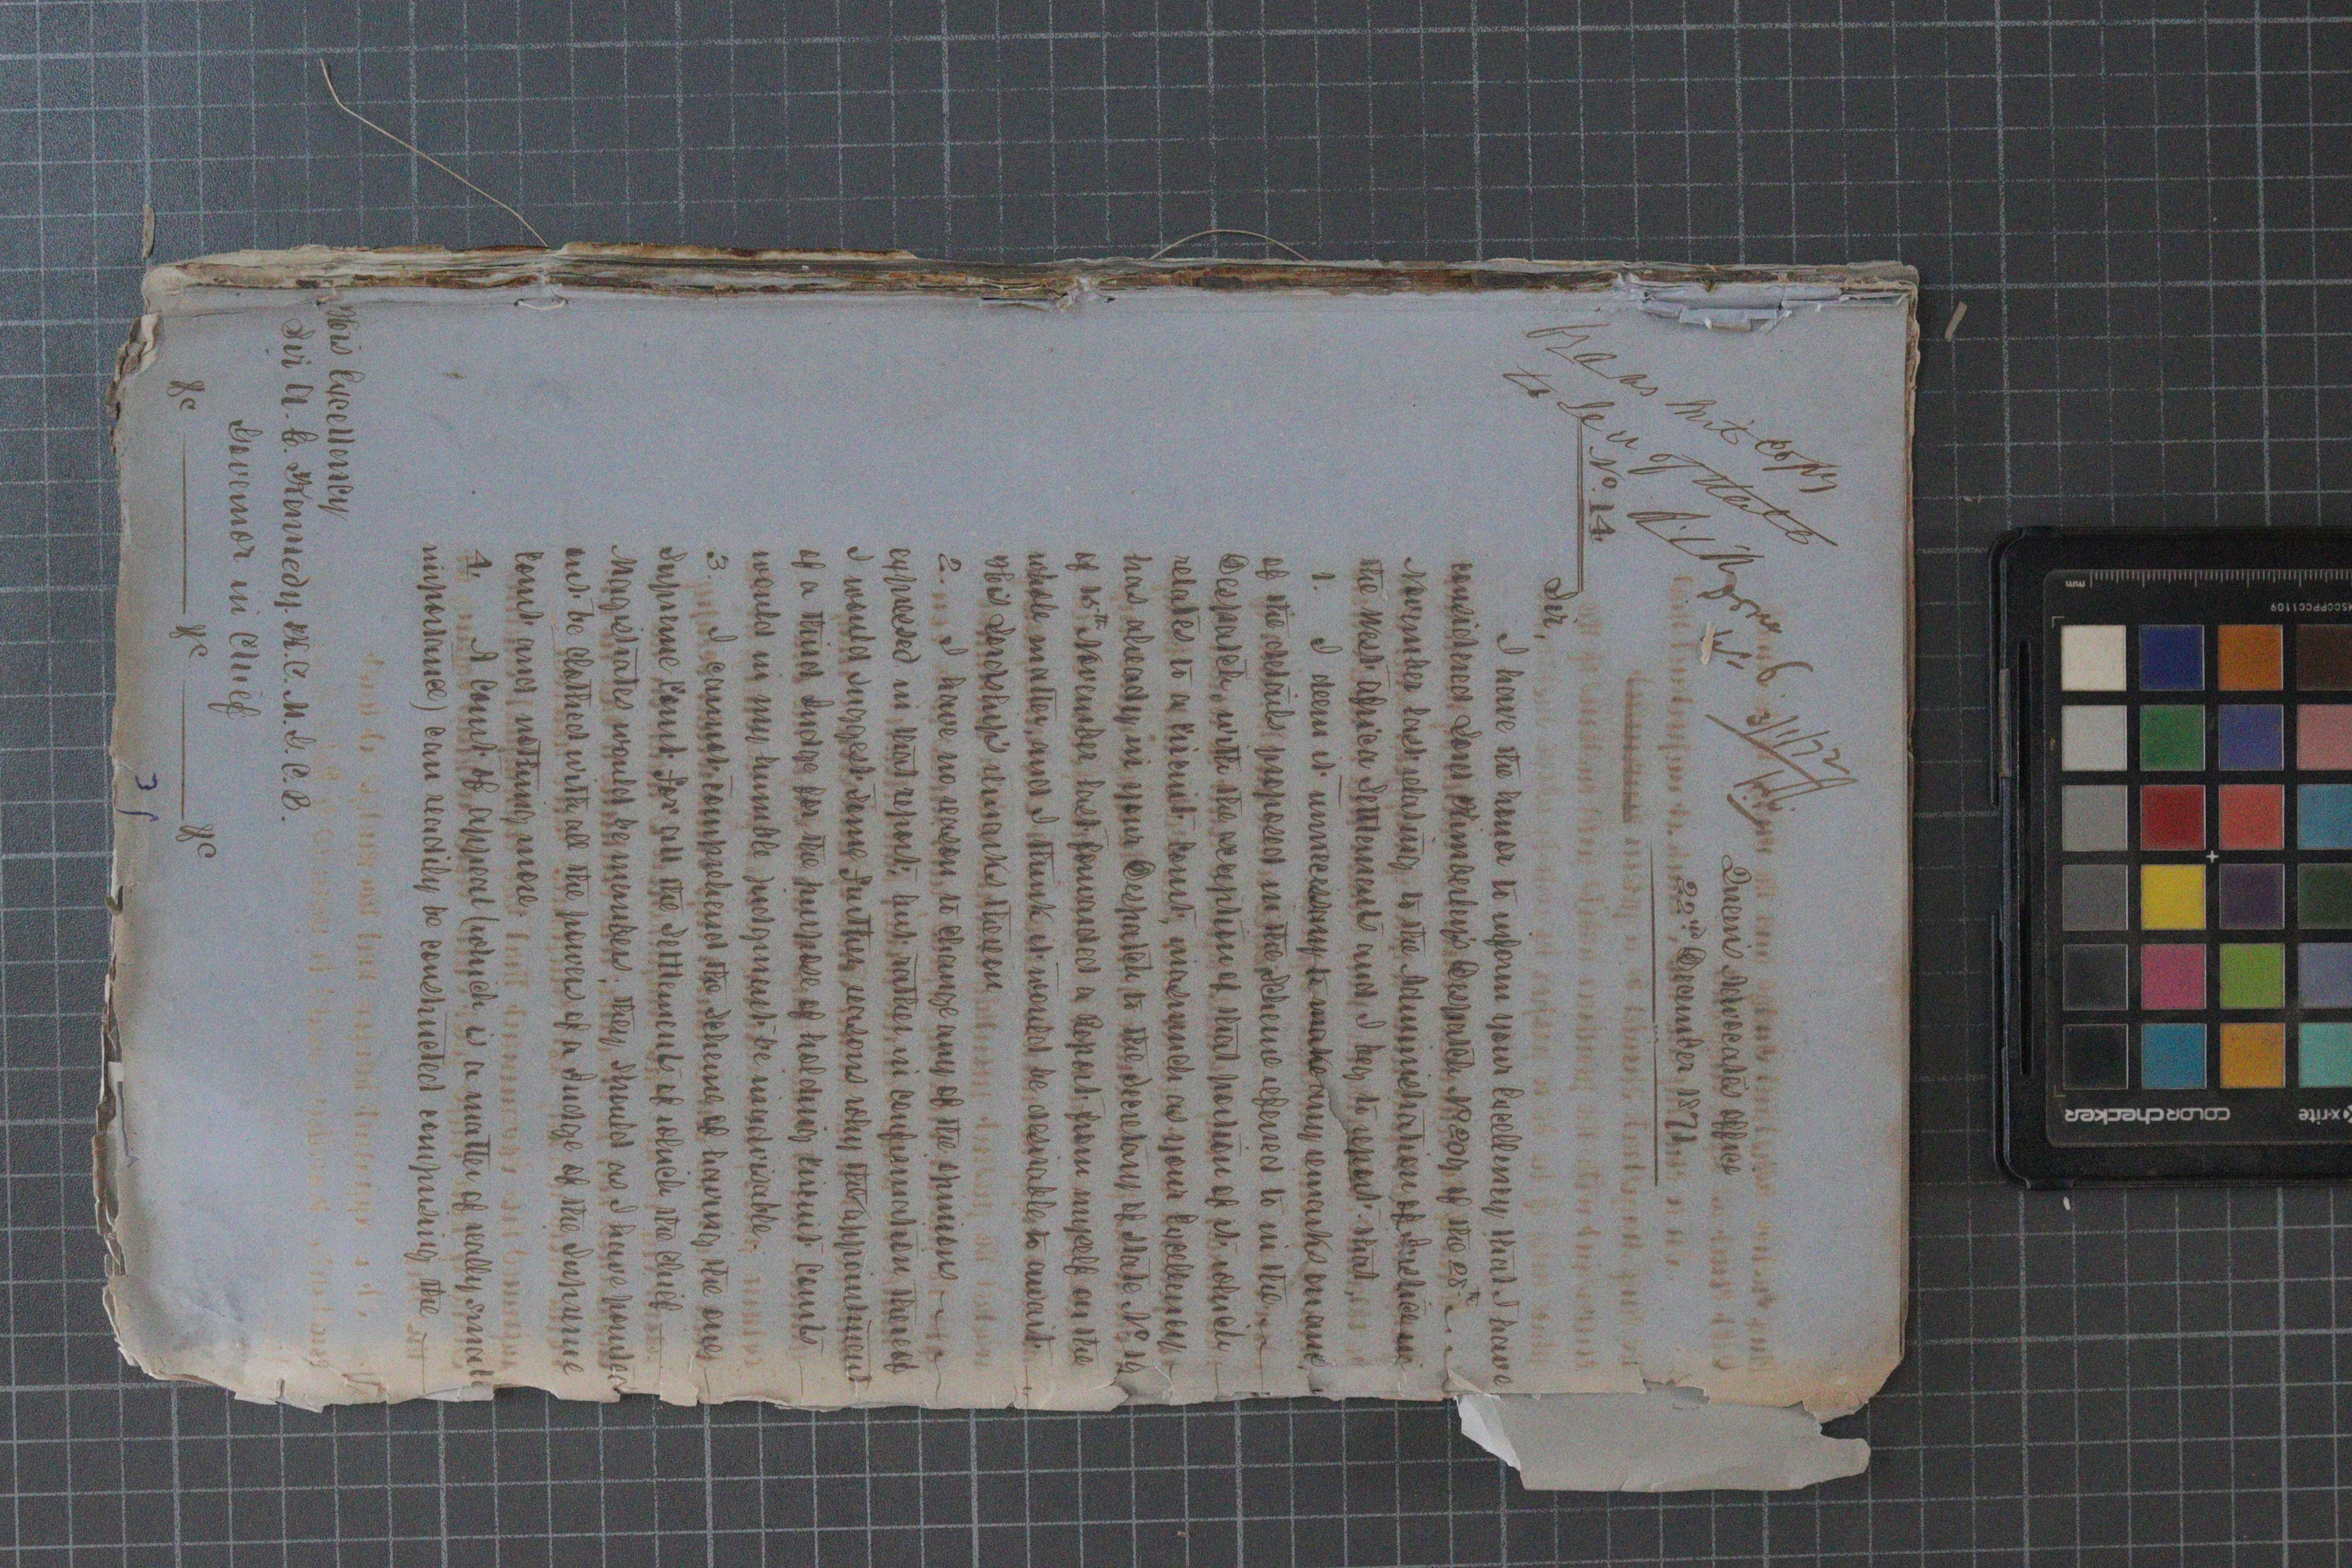 copy
to
3/1/72
Queen's Advocate's Office
22nd December 1871
No. 14
Sir,
I have the honor to inform your Excellency that I have
considered Lord Kimberley's Despatch No 209 of the 28th
November last relating to the Administration of Justice in
the West Africa Settlements and I beg to report that,
1. I deem it unnecessary to make any remarks on any
of the details proposed in the Scheme referred to in the
Despatch, with the exception of that portion of it which
relates to a Circuit Court, inasmuch as your Excellency
has already in your Despatch to the Secretary of State No
of 15th November last forwarded a Report from myself on the
whole matter, and I think it would be desirable to await
His Lordship's remarks thereon
2. I have no reason to change any of the opinions
expressed in that report; but rather in confirmation thereof
I would suggest some further reasons why the appointment
of a third Judge for the purpose of holding Circuit Courts
would in my humble judgment be inadvisable.
3. I cannot comprehend the Scheme of having the one
Supreme Court for all the Settlements of which the Chief
Magistrates would be members, they should as I have pointed
out be clothed with all the powers of a Judge of the Supreme
Court and nothing more
4. A Court of appeal (which is a matter of really small
importance) can readily be constructed comprising the
His Excellency
Sir A. E. Kennedy. K.C.M.G. C.B.
Governor in Chief
&c &c &c
No. 14